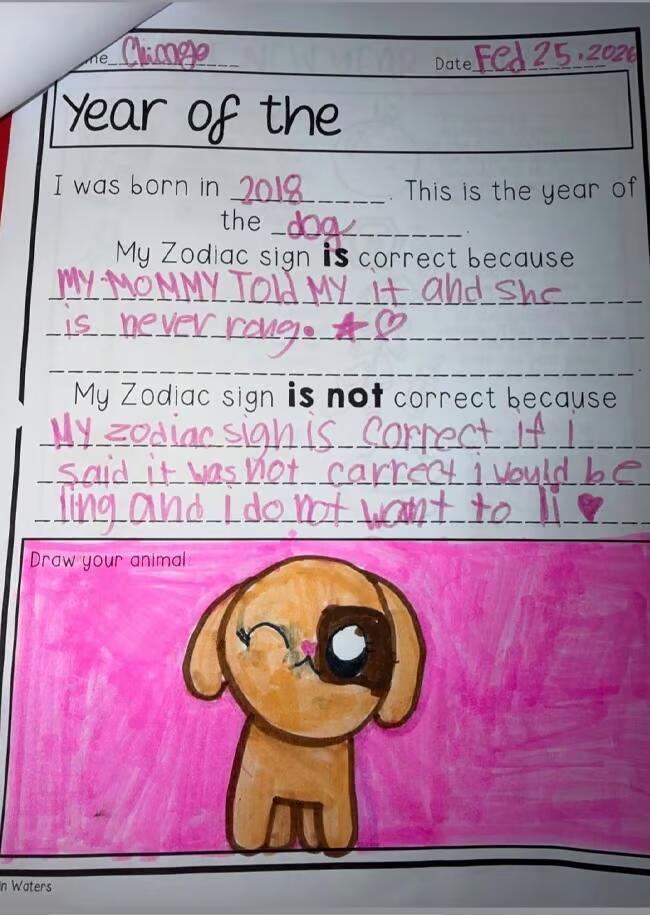 me Chimge Date Fed 25.2026
Year of the
I was born in 2018. This is the year of
the dog.
My Zodiac sign is correct because
MY MOMMY Told MY it and she
is never rong. ★♡
My Zodiac sign is not correct because
My zodiac sign is correct if i
said it was not carrect i would be
ling and i do not want to li ♥
Draw your animal
n Waters